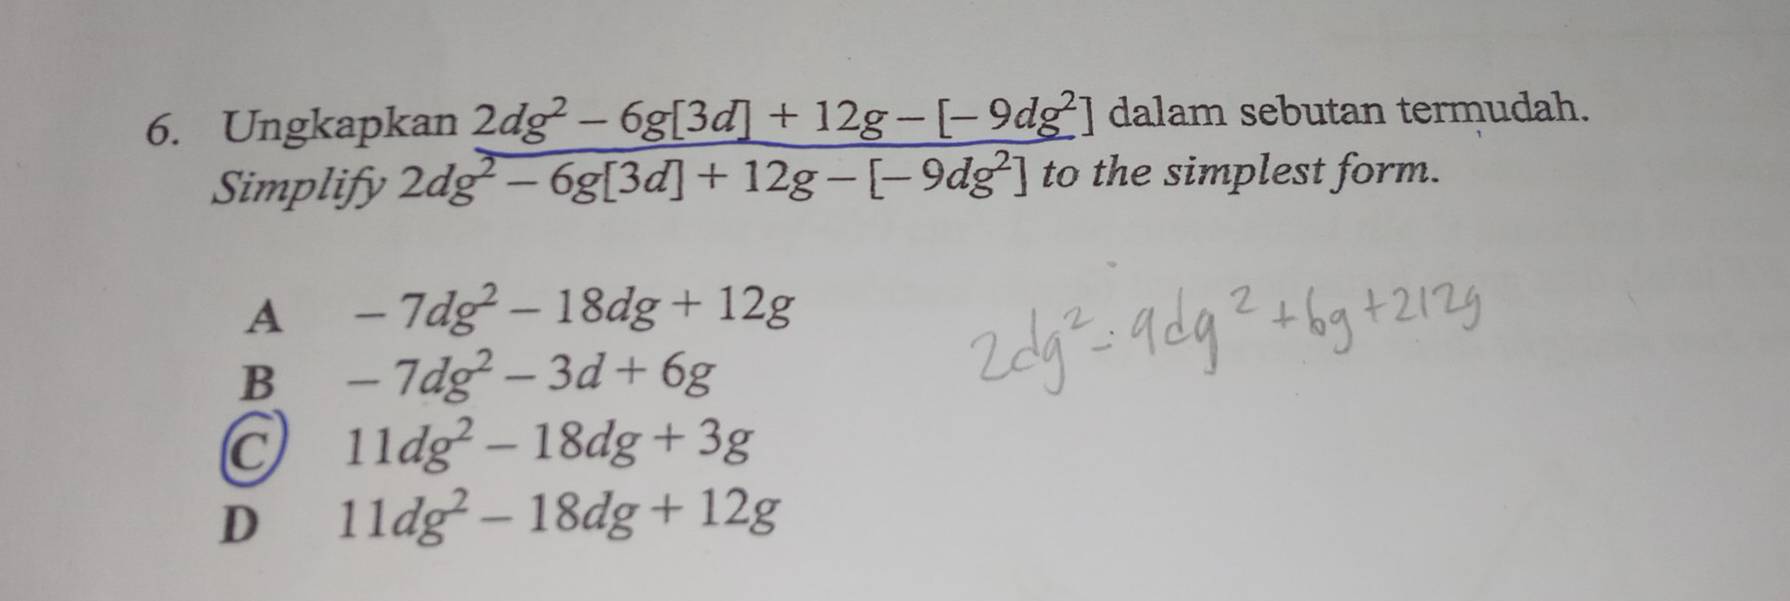 6. Ungkapkan 2dg² – 6g[3d] + 12g – [– 9dg²] dalam sebutan termudah.
Simplify 2dg² – 6g[3d] + 12g – [– 9dg²] to the simplest form.
A – 7dg² – 18dg + 12g
B – 7dg² – 3d + 6g
C 11dg² – 18dg + 3g
D 11dg² – 18dg + 12g
2dg² - 9dg² + 6g + 212g